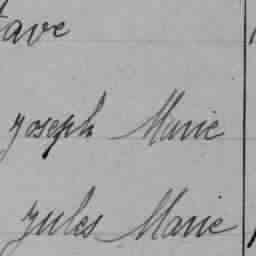 tave
Joseph Marie
Jules Marie